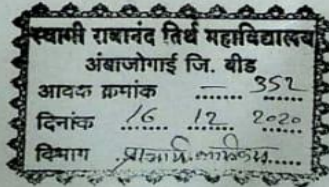 स्वामी रामानंद तिर्थ महाविद्यालय
अंबाजोगाई जि. बीड
आवक क्रमांक 352
दिनांक 16 12 2020
विभाग